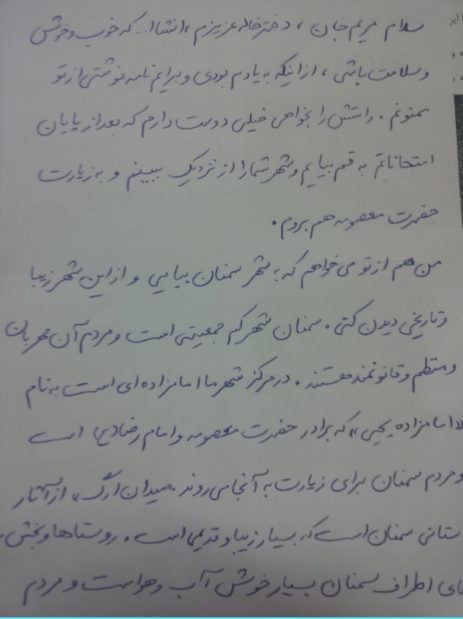 سلام مریم جان ، دخترخاله عزیزم ، انشاا... که خوب و خوش
و سلامت باشی ، از اینکه به یادم بودی و برایم نامه نوشتی از تو
ممنونم . راستش را بخواهی خیلی دوست دارم که بعد از پایان
امتحاناتم به قم بیایم و شهر شما را از نزدیک ببینم و به زیارت
حضرت معصومه هم بروم .
من هم از تو می خواهم که به شهر سمنان بیایی و از این شهر زیبا
و تاریخی دیدن کنی . سمنان شهر کم جمعیتی است و مردم آن مهربان
و منظم و قانونمند هستند . در مرکز شهر ما امامزاده ای است به نام
«امامزاده یحیی» که برادر حضرت معصومه و امام رضا است
و مردم سمنان برای زیارت به آنجا می روند . «میدان ارگ» از آثار
ستانی سمنان است که بسیار زیبا و قدیمی است . روستاها و بخش
های اطراف سمنان بسیار خوش آب و هواست و مردم